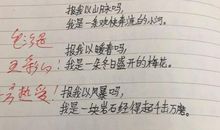 报我以山脉吗,
我是一条欢快奔流的小河。
报我以暖春吗,
我是一朵冬日盛开的梅花。
报我以风暴吗,
我是一块岩石经得起千击万磨。